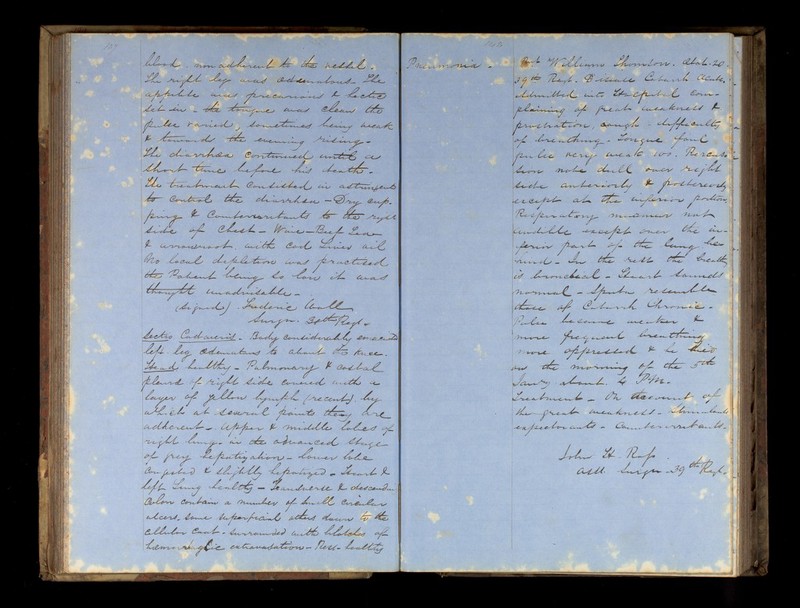 blood, non adherent to the vessel.
The right leg was oedematous. The
appetite was precarious & hectic
set in. the tongue was clean the
pulse varied, sometimes being weak
& towards the evening rising.
The diarrhoea continued until a
short time before his death.
The treatment consisted in astringents
to control the diarrhoea - Dry cup-
ping & Counterirritants to the right
side of Chest - Wine - Beef Tea
& arrowroot with Cod Liver oil
No local depletion was practiced
the Patient being so low it was
thought unadvisable -
(Signed) Frederic Wall
Surgn. 38th Regt.
Sectio Cadaveris - Body considerably emaciated
left leg oedematous to about the knee.
Head healthy - Pulmonary & costal
pleura of right side covered with a
layer of yellow lymph (recent) by
which at several points they are
adherent - Upper & middle lobes of
right lung in the advanced stage
of grey hepatization - lower lobe
congested & slightly hepatized - Heart &
left lung healthy - Transverse & descending
Colon contain a number of small circular
ulcers, some superficial others down to the
cellular coat - surrounded with blotches of
haemorrhagic extravasation - Rest healthy
Pneumonia -
William aetat. 20
39th Regt. Disease Catarrh Acute.
Admitted into Hospital com-
plaining of great weakness &
prostration, cough, difficulty
of breathing. Tongue foul
pulse very weak 100. Percus-
sion note dull over right
side anteriorly & posteriorly
except at the inferior portion
Respiratory murmur not
audible except over the in-
ferior part of the lung be-
hind - In the rest the breath
is bronchial - Heart sounds
normal - Sputa resemble
those of Catarrh Chronic -
Pulse became weaker &
more frequent breathing
more oppressed & he died
on the morning of the 5th
Jany about 4
Treatment - On account of
the great weakness - Stimulants
expectorants - Counterirritants.
John H.
Asst Surgn 39th Regt